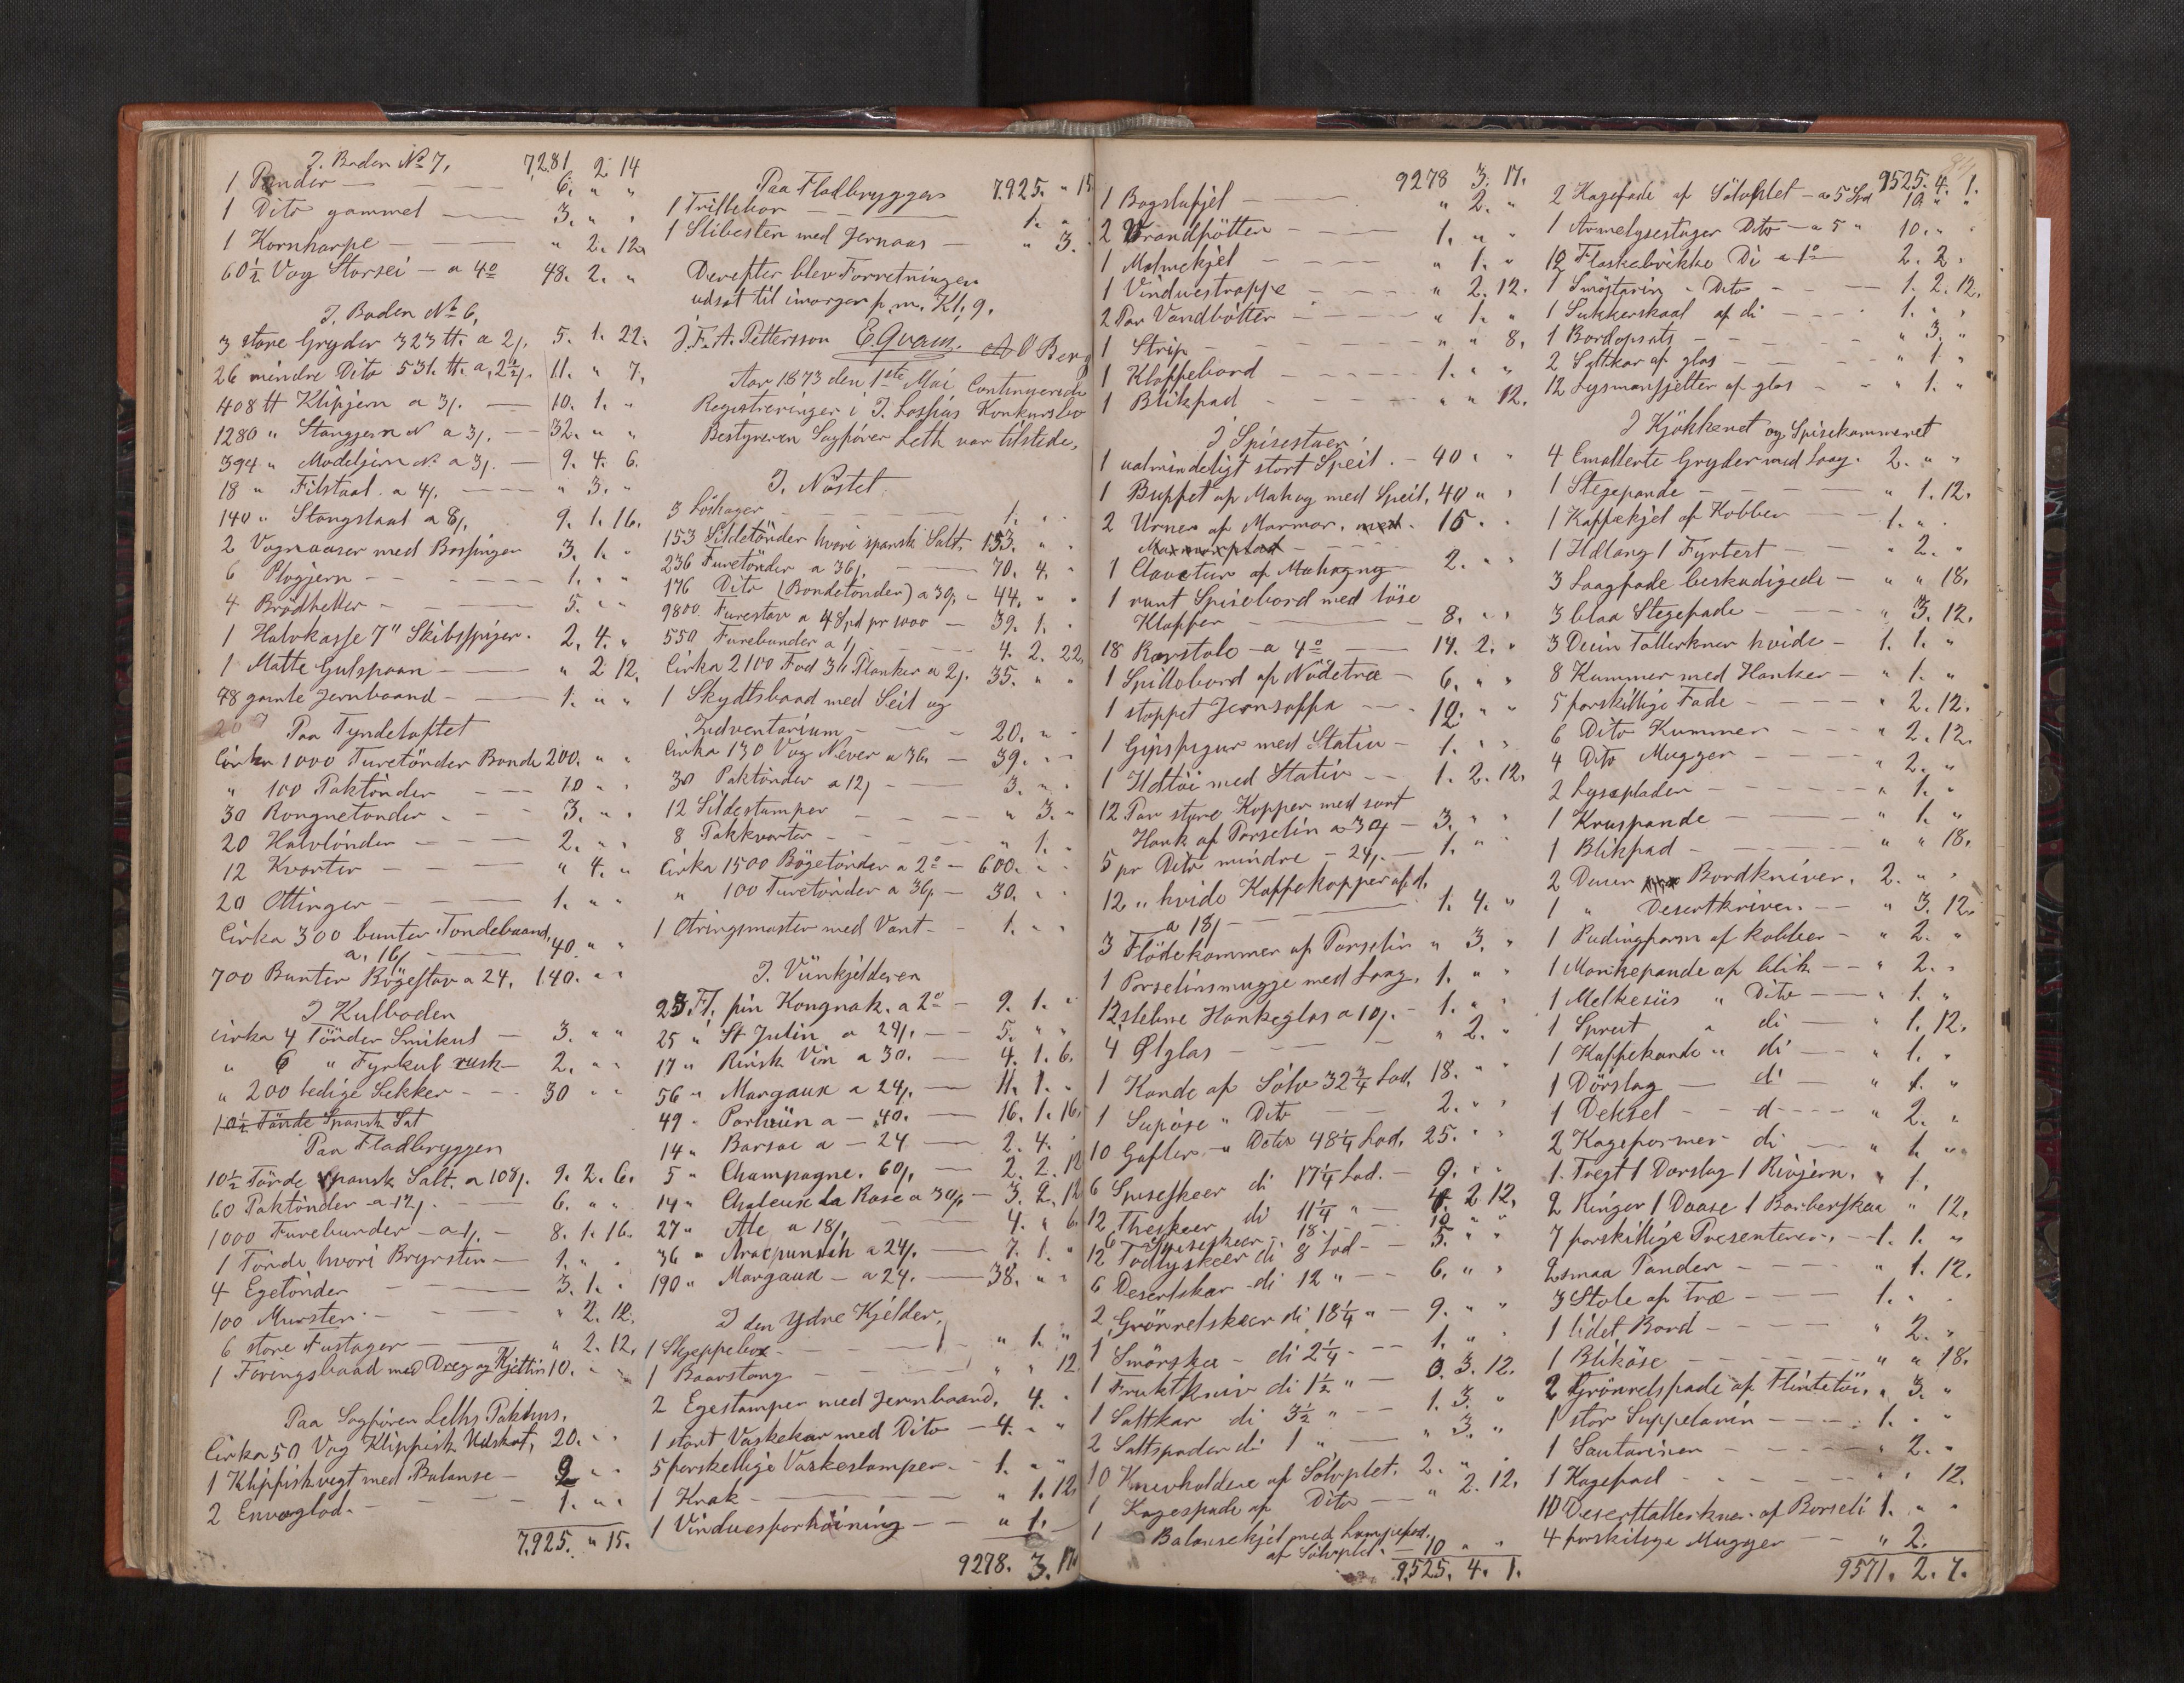 I. Boden No 7, 7281 2 14
1 Pundir — 6. " "
1 Dito gammel — 3. " "
1 Kornharpe — " 2. 12.
60½ Vog Storsei — a 4o 48. 2. "
I. Boden No 6,
3 store Gryder 323 tt. a 2/. 5. 1. 22.
26 mindre Dito 531. tt. a 2½/. 11. " 7.
408 tt Klipjern a 3/. — 10. 1. "
1280 " Stangjern a 3/. — 32. " "
394 " Modeljern a 3/. — 9. 4. 6.
18 " Filstaal a 4/. — " 3. "
140 " Stangstaal a 8/. 9. 1. 16.
2 Vognaaser med Bossinger 3. 1. "
6 Plogjern — 1. " "
4 Brödheller — 5. " "
1 Halvkasse 7" Skibsspiger. 2. 4. "
1 Matte Gulspaan — " 2 12.
48 gamle Jernbaand — 1. " "
Paa Tyndeloftet
Cirka 1000 Furetönder Bonde 200. " "
" 100 Paktönder — 10 " "
30 Rongnetönder — 3. " "
20 Halvtönder — 2. " "
12 Kvarter — " 4. "
20 Ottinger — 1. " "
Cirka 300 bunter Tondebaand,
a. 16/ — 40. " "
700 Bunter Bögestav a 24. 140. " "
I Kulboden
cirka 4 Tönder Smikul — 3. " "
" 6 " Fyrkul rusk — 2. " "
" 200 ledige Sekker — 30 " "
10½ Tönde Spansk Salt
Paa Fladbryggen
10½ Tönde spansk Salt. a 108/. 9. 2. 6.
60 Paktönder a 12/. — 6. " "
1000 Furebunder — a 1/. — 8. 1. 16.
1 Tönde hvori Bryrsten — 1. " "
4 Egetönder — 3. 1. "
100 Mursten — " 2. 12.
6 store Fustager — " 2. 12.
1 Föringsbaad med Dreg og Kjetting 10. " "
Paa Sagförer Leths Pakhus,
Cirka 50 Vog Klipfisk Udskot, 20. " "
1 Klipfiskvegt med Balanse — 9 " "
2 Envoglod. — 1. " "
7,925. " 15.
Paa Fladbryggen 7.925. " 15
1 Trillebor — 1. " "
1 Slibesten med Jernaas — " 3. "
Derefter blev Forretningen
udsat til imorgen f. m. Kl. 9.
J. F. A. Pettersson E Qvam. A O Berg
Aar 1873 den 1ste Mai Continuerede
Registreringen i J. Lossius Konkursbo
Bestyreren Sagfører Leth var tilstede,
I. Nöstet
3 Löshager — 1. " "
153 Sildetönder hvori spansk Salt, 153. " "
236 Furetönder a 36/. — 70. 4. "
176 Dito (Bondetönder) a 30/. — 44. " "
9800 Furestav a 4 Spd pr 1000 — 39. 1. "
550 Furebunder a 1/ — 4. 2. 22.
Cirka 2100 Fod 3 ll Planker a 2/. 35. " "
1 Skydtsbaad med Seil og
Indventarium — 20. " "
Cirka 130 Vog Never a 36. — 39. " "
30 Paktönder a 12/ — 3. " "
12 Sildestamper — " 3. "
8 Pakkvarter — " 1. "
Cirka 1500 Bögetönder a 2o — 600. " "
" 100 Furetönder a 36/. — 30. " "
1 Otringsmaster med Vant — 1. " "
I. Viinkjelderen
23 Fl. fin Kongnak. a 2o — 9. 1. "
25 " St Julin a 24/. — 5. " "
17 " Rinsk Vin a 30. — 4. 1. 6.
56 " Margaux a 24/. — 11. 1. "
49 " Portviin a — 40. — 16. 1. 16.
14 " Barsac a — 24 — 2. 4. "
5 " Champagne. 60/. — 2. 2. 12
14 " Chateux la Rose a 30/. — 3. 2. 12
27 " Ale a 18/. — 4. " 6
36 " Aracpunsch a 24/. — 7. 1. "
190 " Margaux — a 24. — 38. " "
I den Ydre Kjelder.
1 Skjeppebox — " 1. "
1 Baarstang — " " 12
2 Egestamper med Jernbaand, 4. "
1 stort Vaskekar med Dito — 4. " "
5 forskellige Vaskestamper — 1. " "
1 Krak — " 1. 12.
1 Vinduesforhöining — " 1. "
9278. 3. 17.
9278 3. 17.
1 Bogslafjel — " 2. "
2 Vrandbötter — 1. " "
1 Malmekjel — " 1. "
1 Vinduestrappe — " 2. 12.
2 Par Vandbötter — " 1. "
1 Strip — " " 8.
1 Kloppebord — 1. " "
1 Blikfad — " " 12.
I Spisestuen
1 ualmindeligt stort Speil. — 40 " "
1 Buffet af Mahog med Speil, 40 " "
2 Urner af Marmor, med 16. "
Marmorplad —
1 Clavetur af Mahogny — 2. " "
1 runt Spisebord med löse
Klapper — 8. " "
18 Rorstole — a 4o — 14. 2. "
1 Spillebord af Nödetræ — 6. " "
1 stoppet Jernsoffa — 12. " "
1 Gipsfigur med Stativ — 1. " "
1 Ildtöi med Stativ — 1. 2. 12.
12 Par store Kopper med sort
Hank af Porselin a 30/ — 3. " "
5 pr Dito mindre — 24/. — 1. "
12 " hvide Kaffekopper a d.
a 18/ — 1. 4. "
3 Flödekommer af Porselin " 3. "
1 Porselinsmugge med Laag. 1. " "
12 slebne Hankeglas a 10/. — 1. " "
4 Ølglas — " 2. "
1 Kande af Sölv 32¾ Lod. 18. " "
1 Supöse " Dito — 2. " "
10 Gafler — " Dito 48¼ Lod. 25. " "
6 Spiseskeer di 17¼ Lod. — 9. " "
12 Theskeer di 11¼ " — 6. 2 12.
6 Spiseskeer — 18. — 10 " "
12 Todlyskeer di 8 Lod — 5. " "
6 Desertskar — di 12 " — 6. " "
2 Grönretskeer di 18¼ " — 9. " "
1 Smörske — di 2¼ — 1. " "
1 Fruktkniv di 1½ " — 0. 3. 12.
1 Saltkar di 3½ " — 1. 3. "
2 Saltspader di 1 " — " 3. "
10 Knivholdere af Sölvplet. 2. " "
1 Kagespade af Dito — " 2. 12.
1 Balansekjel med Lampefad.
af Sölvplet — 10 " "
9,525. 4. 1.
9525. 4. 1.
2 Kagefade af Sölvplet — a 5 Spd 10. " "
1 Armelysestager Dito — a 5 " 10. " "
12 Flaskebrikke Di a 1o 2. 2. "
1 Smöstarin " Dito — 1. 2. 12.
1 Sukkerskaal af di — 1. " "
1 Bordopsats — " 3. "
2 Syltkar af glas — " 1. "
12 Lysmansjetter af glas — " 1. "
I Kjökkenet og Spisekammeret
4 Emallerte Gryder med Laag. 2. " "
1 Stegepande — " 1. 12.
1 Kaffekjel af Kobber — 1. " "
1 Ildtang 1 Fyrtert — " 2. "
3 Laagfade beskadigede — " " 18.
3 blaa Stegefade — " 3. 12.
3 Dusin Tallerkner hvide — 1. 1. "
8 Kummer med Hanker — " 1. "
5 forskillige Fade — " 2. 12.
6 Dito Kummer — " 2. 12.
4 Dito Mugger — " 2. "
2 Lyseplader — " 1. "
1 Kruspande — " 1. "
1 Blikfad — " " 18.
2 Dusin Bordkniver. 2. " "
1 " Desertkniver. — " 3. 12.
1 Pudingform af kobber — " 2. "
1 Monkepande af blik — " 2. "
1 Melkesiis " Dito — " 1. "
1 Sprut " di — " 1. 12.
1 Kaffekande " di — " 1. "
1 Dörslag — di — " 1. "
1 Deksel — d — " 2. "
2 Kageformer di — " 1. "
1. Tregt 1 Dorslag 1 Rivjern. " 1.
2 Ringer 1 Daase 1 Barberskaa " 12.
7 forskillige Presenterer. — 1. 1. "
2 smaa Pander — " 1. 12.
3 Stole af Træ — 1. " "
1 lidet Bord — " 2. "
1 Bliköse — " " 18.
2 Grönretsfade af Flintetöi. " 3. "
1 stor Suppeterin — 1. " "
1 Sauterinen — " 2. "
1 Kagefad — " " 12.
10 Deserttallerkner af Borseli 1. " "
4 forskilige Mugger — " 2.
9571. 2. 7.